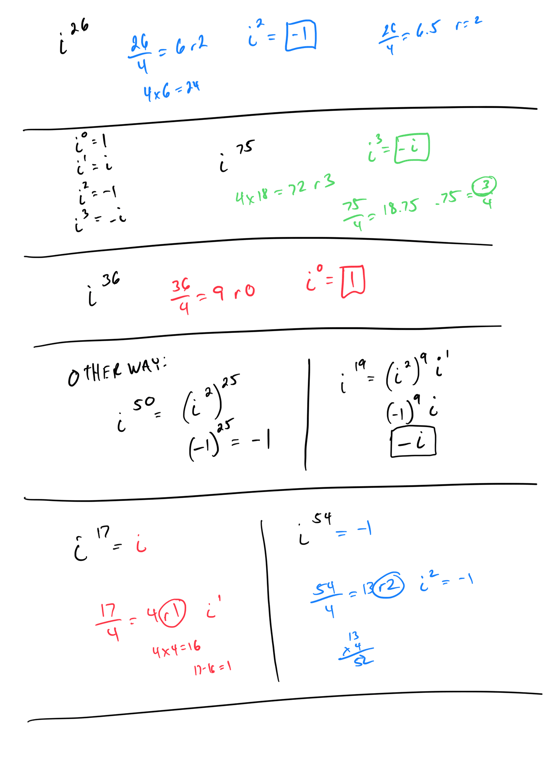 i^26   26/4 = 6 r 2   i^2 = -1   26/4 = 6.5   r = 2
4 x 6 = 24
i^0 = 1
i^1 = i
i^2 = -1
i^3 = -i
i^75   i^3 = -i
4 x 18 = 72 r 3
75/4 = 18.75   .75 = 3/4
i^36   36/4 = 9 r 0   i^0 = 1
OTHER WAY:
i^50 = (i^2)^25
(-1)^25 = -1
i^19 = (i^2)^9 i^1
(-1)^9 i
-i
i^17 = i
17/4 = 4 r 1   i^1
4 x 4 = 16
17-16 = 1
i^54 = -1
54/4 = 13 r 2   i^2 = -1
13
x 4
52